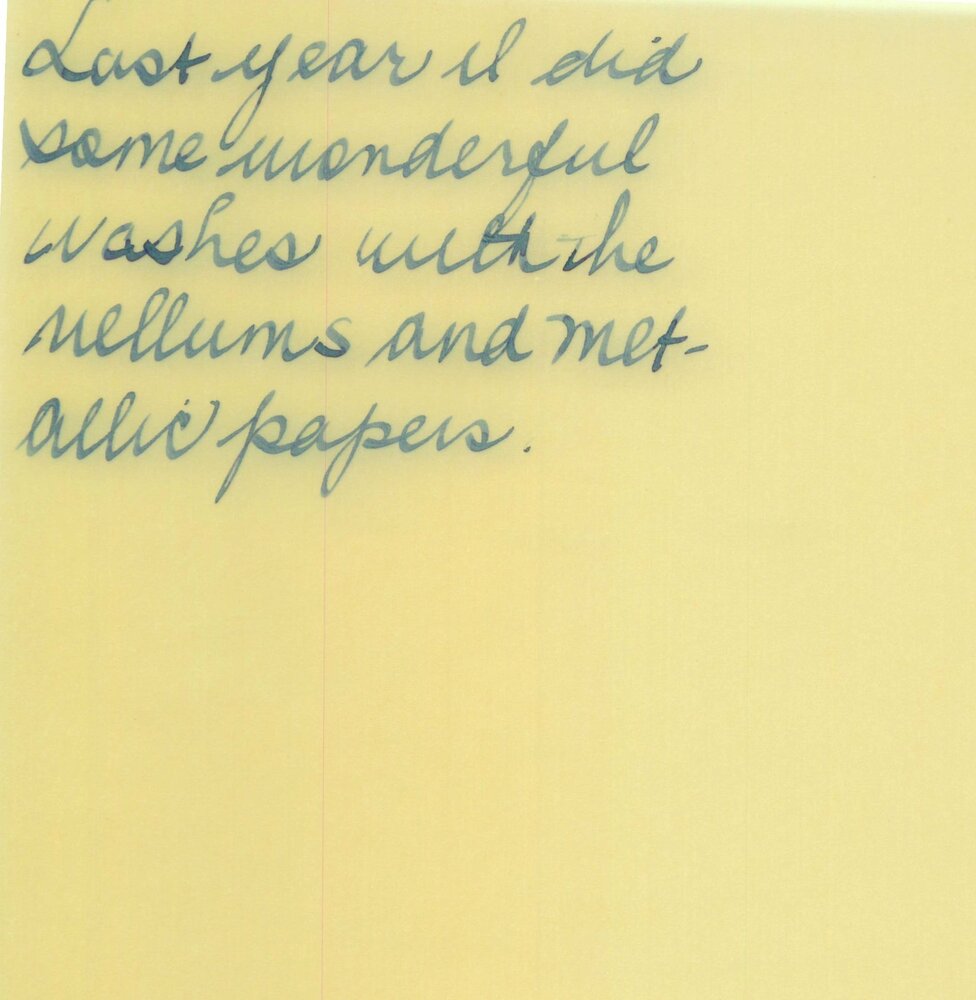 Last year I did
some wonderful
washes with the
vellums and met-
allic papers.